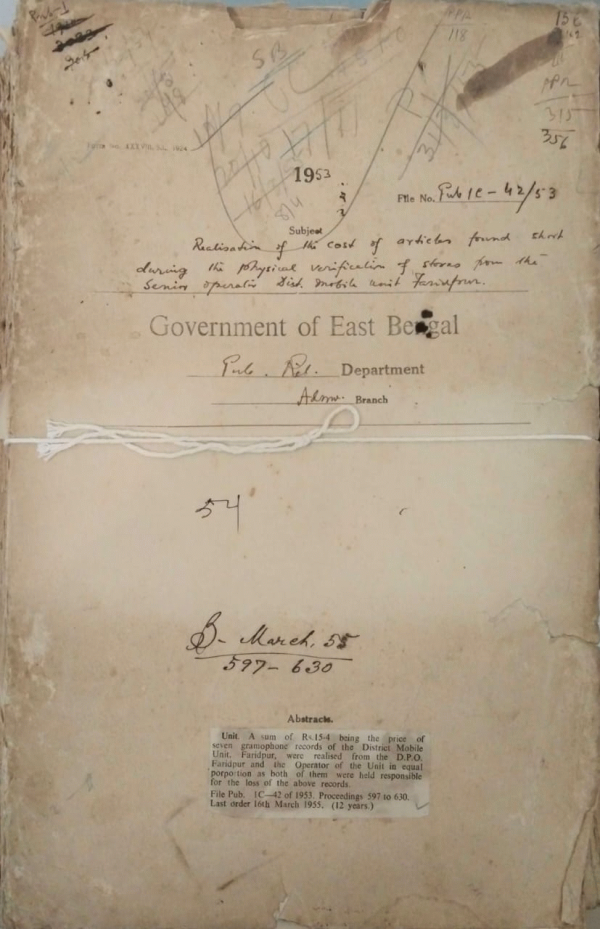 Pub-1
305
SB
PPR
118
PPR
315
356
1953
File No. Pub 1C-42/53
Subject
Realisation of the cost of articles found short
during the physical verification of stores from the
Senior operator Dist. Mobile unit Faridpur.
Government of East Bengal
Pub. Rel. Department
Admn. Branch
54
B- March, 55
597-630
Abstracts.
Unit. A sum of Rs.15-4 being the price of
seven gramophone records of the District Mobile
Unit, Faridpur, were realised from the D.P.O.
Faridpur and the Operator of the Unit in equal
porportion as both of them were held responsible
for the loss of the above records.
File Pub. 1C—42 of 1953. Proceedings 597 to 630.
Last order 16th March 1955. (12 years.)